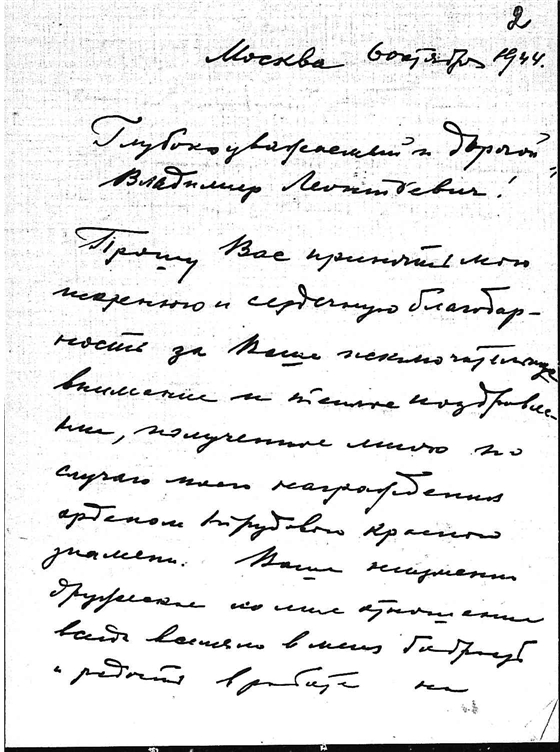 2
Москва 6 октября 1944.
Глубокоуважаемый и дорогой
Владимир Леонтьевич!
Прошу Вас принять мою
искреннюю и сердечную благодар-
ность за Ваше исключительное
внимание и теплое поздравле-
ние, полученное мною по
случаю моего награждения
орденом Трудового красного
знамени. Ваше неизменно
дружеское ко мне отношение
всегда вселяло в меня бодрость
и радость в работе на